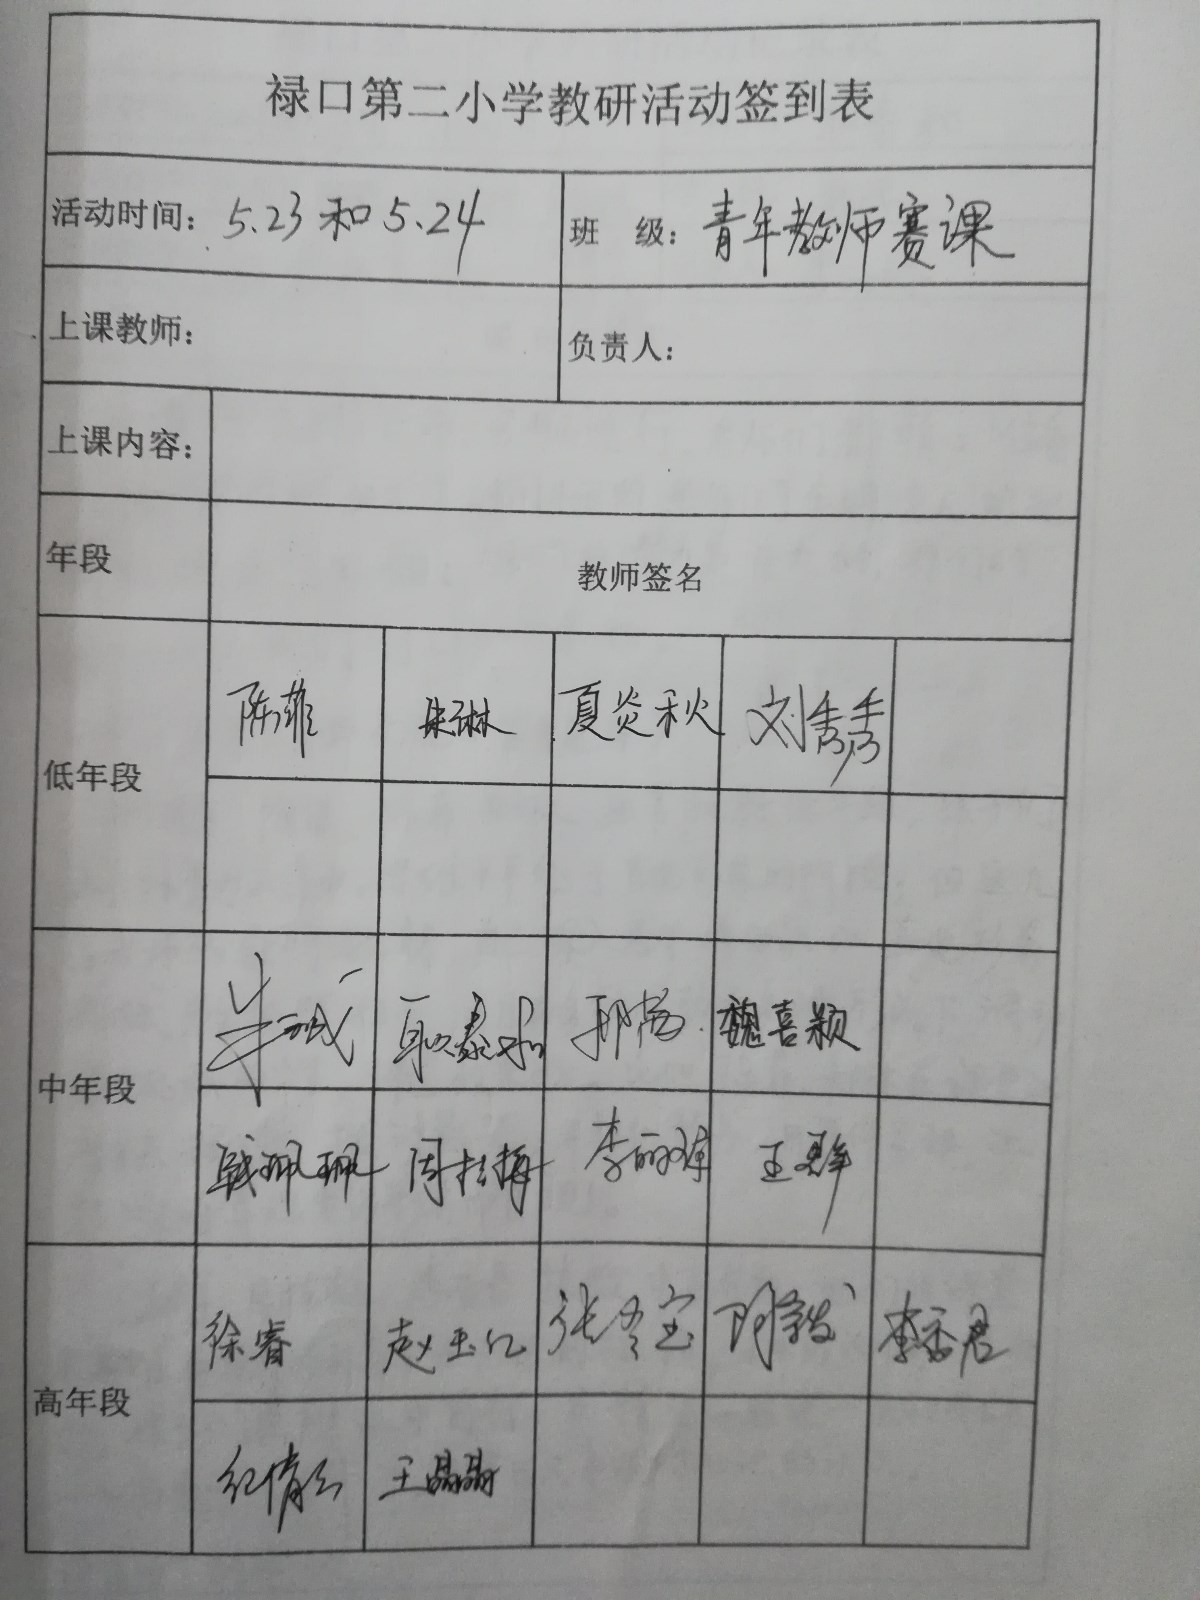 禄口第二小学教研活动签到表
活动时间：5.23和5.24 班 级：青年教师赛课
上课教师： 负责人：
上课内容：
年段 教师签名
低年段
陈菲 朱琳 夏炎秋 刘秀秀
中年段
朱诚 耿泰和 魏喜颖
钱珮珮 周拉梅 王群
高年段
徐睿 赵玉仁 张冬宝 李香君
纪倩云 王晶晶